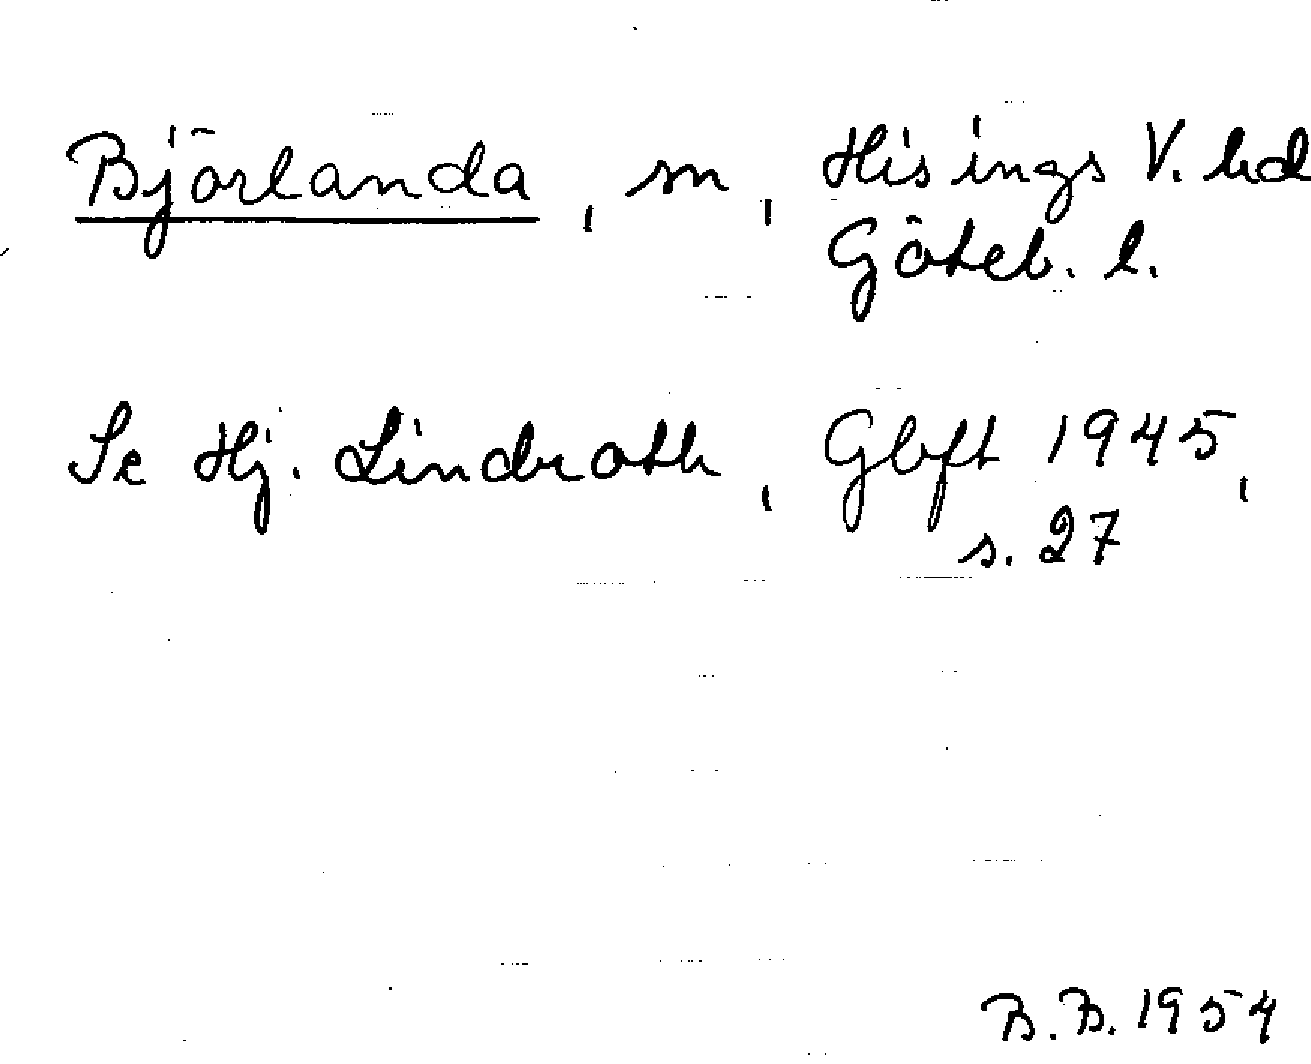 Björlanda, sn, Hisings V. hd
Göteb. l.
Se Hj. Lindroth, Gbft 1945,
s. 27
B.B. 1954